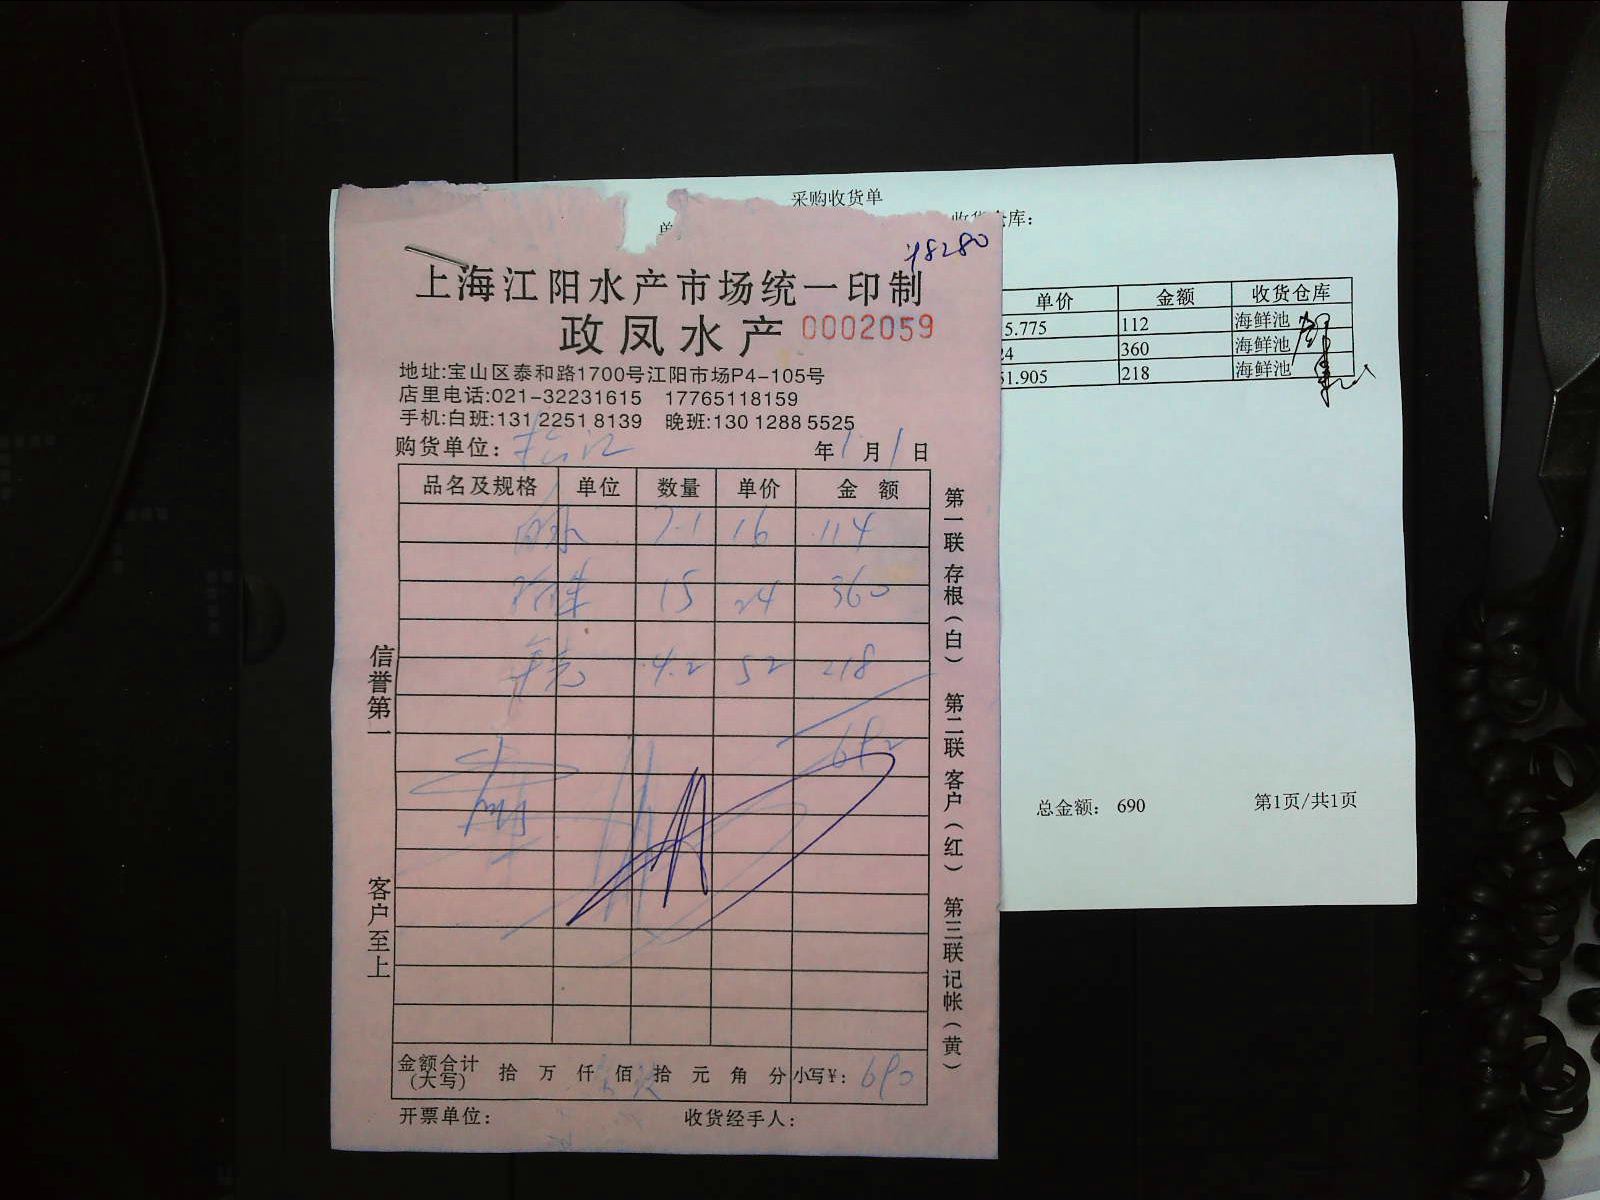 采购收货单
收货仓库：
单价 金额 收货仓库
5.775 112 海鲜池
24 360 海鲜池
51.905 218 海鲜池
总金额： 690 第1页/共1页
48280
上海江阳水产市场统一印制
政凤水产 0002059
地址:宝山区泰和路1700号江阳市场P4-105号
店里电话:021-32231615 17765118159
手机:白班:131 2251 8139 晚班:130 1288 5525
购货单位： 年1月1日
品名及规格 单位 数量 单价 金 额
7.1 16 114
15 24 360
4.2 52 218
692
金额合计(大写) 拾 万 仟 佰 拾 元 角 分 小写¥： 690
开票单位： 收货经手人：
信誉第一
客户至上
第一联 存根（白） 第二联 客户（红） 第三联 记帐（黄）